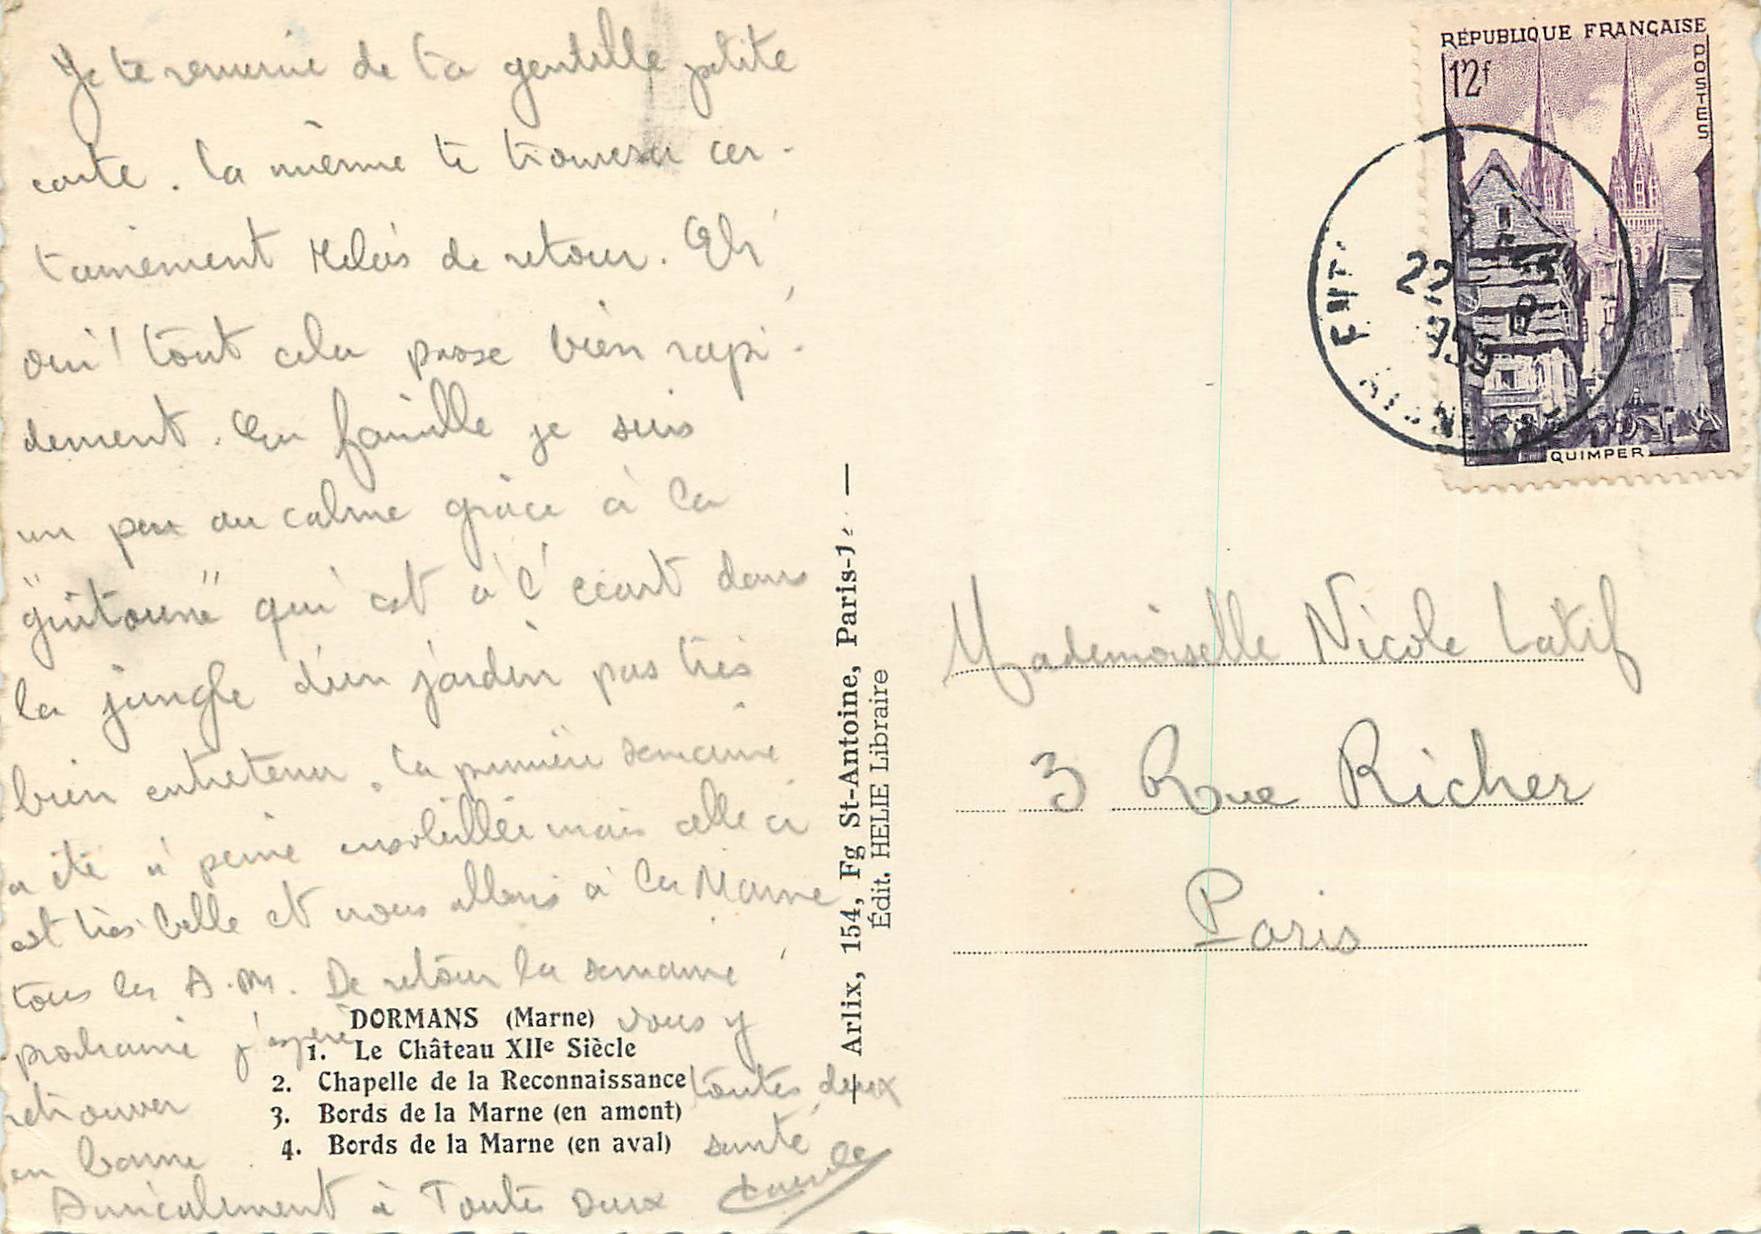 Je te remercie de ta gentille petite
carte. La mienne te trouvera cer-
tainement Hélas de retour. Eh
oui! tout cela passe bien rapi-
dement. En famille je suis
un peu au calme grâce à la
"guitoune" qui est à l'écart dans
la jungle d'un jardin pas très
bien entretenu. La première semaine
a été à peine ensoleillée mais celle ci
est très belle et nous allons à la Marne
tous les A.M. De retour la semaine
prochaine j'espère vous y
retrouver toutes deux
en bonne santé
Amicalement à Toutes Deux
DORMANS (Marne)
1. Le Château XIIe Siècle
2. Chapelle de la Reconnaissance
3. Bords de la Marne (en amont)
4. Bords de la Marne (en aval)
Arlix, 154, Fg St-Antoine, Paris-1
Édit. HELIE Libraire
RÉPUBLIQUE FRANÇAISE
12f
POSTES
QUIMPER
22
Mademoiselle Nicole Latif
3 Rue Richer
Paris